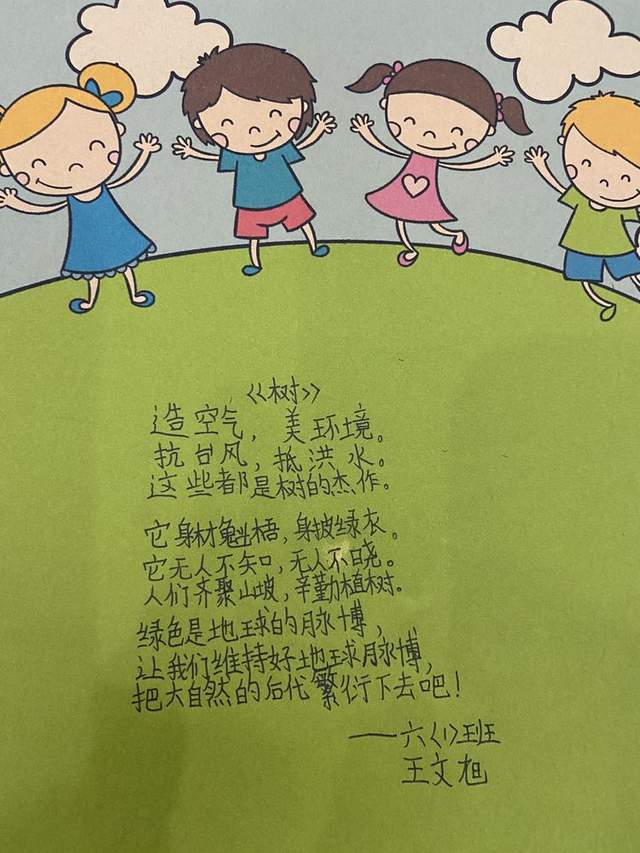 《树》
造空气，美环境。
抗台风，抵洪水。
这些都是树的杰作。
它身材魁梧，身披绿衣。
它无人不知，无人不晓。
人们齐聚山坡，辛勤植树。
绿色是地球的脉博，
让我们维持好地球脉博，
把大自然的后代繁衍下去吧！
——六〈1〉班
王文旭